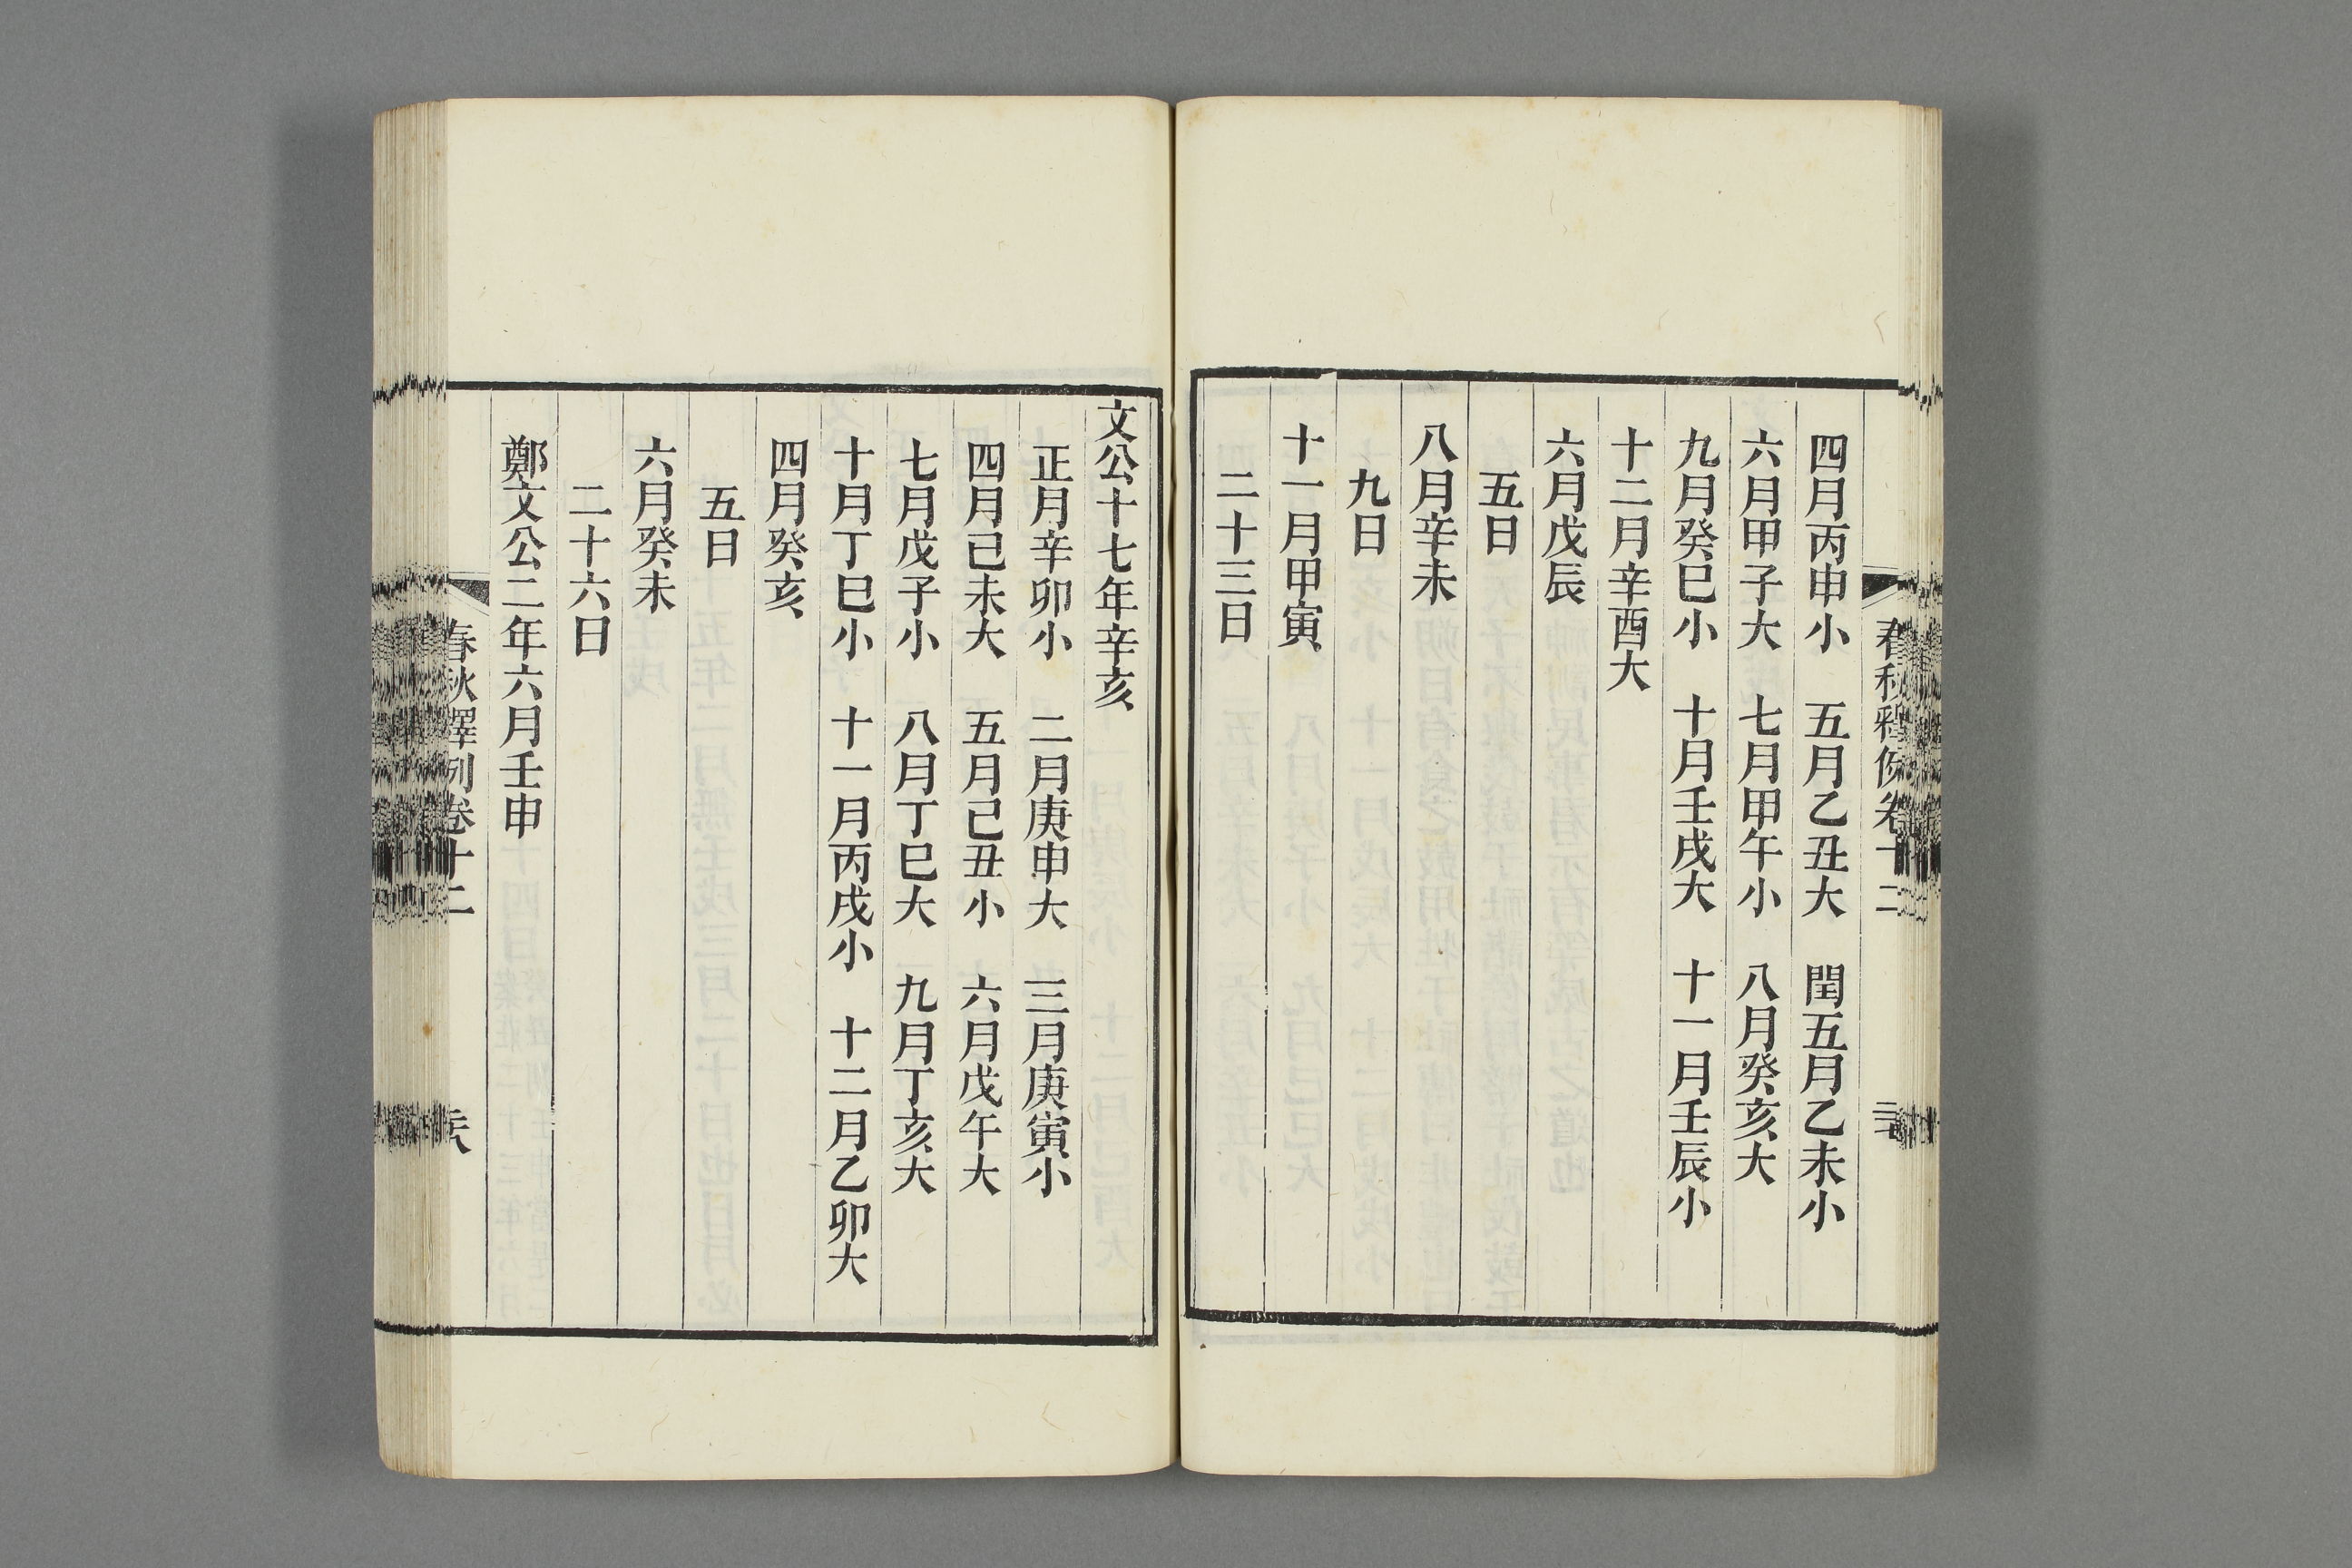 春秋釋例卷十二
四月丙申小　五月乙丑大　閏五月乙未小
六月甲子大　七月甲午小　八月癸亥大
九月癸巳小　十月壬戌大　十一月壬辰小
十二月辛酉大
六月戊辰
五日
八月辛未
九日
十一月甲寅
二十三日
文公十七年辛亥
正月辛卯小　二月庚申大　三月庚寅小
四月己未大　五月己丑小　六月戊午大
七月戊子小　八月丁巳大　九月丁亥大
十月丁巳小　十一月丙戌小　十二月乙卯大
四月癸亥
五日
六月癸未
二十六日
鄭文公二年六月壬申
春秋釋例卷十二